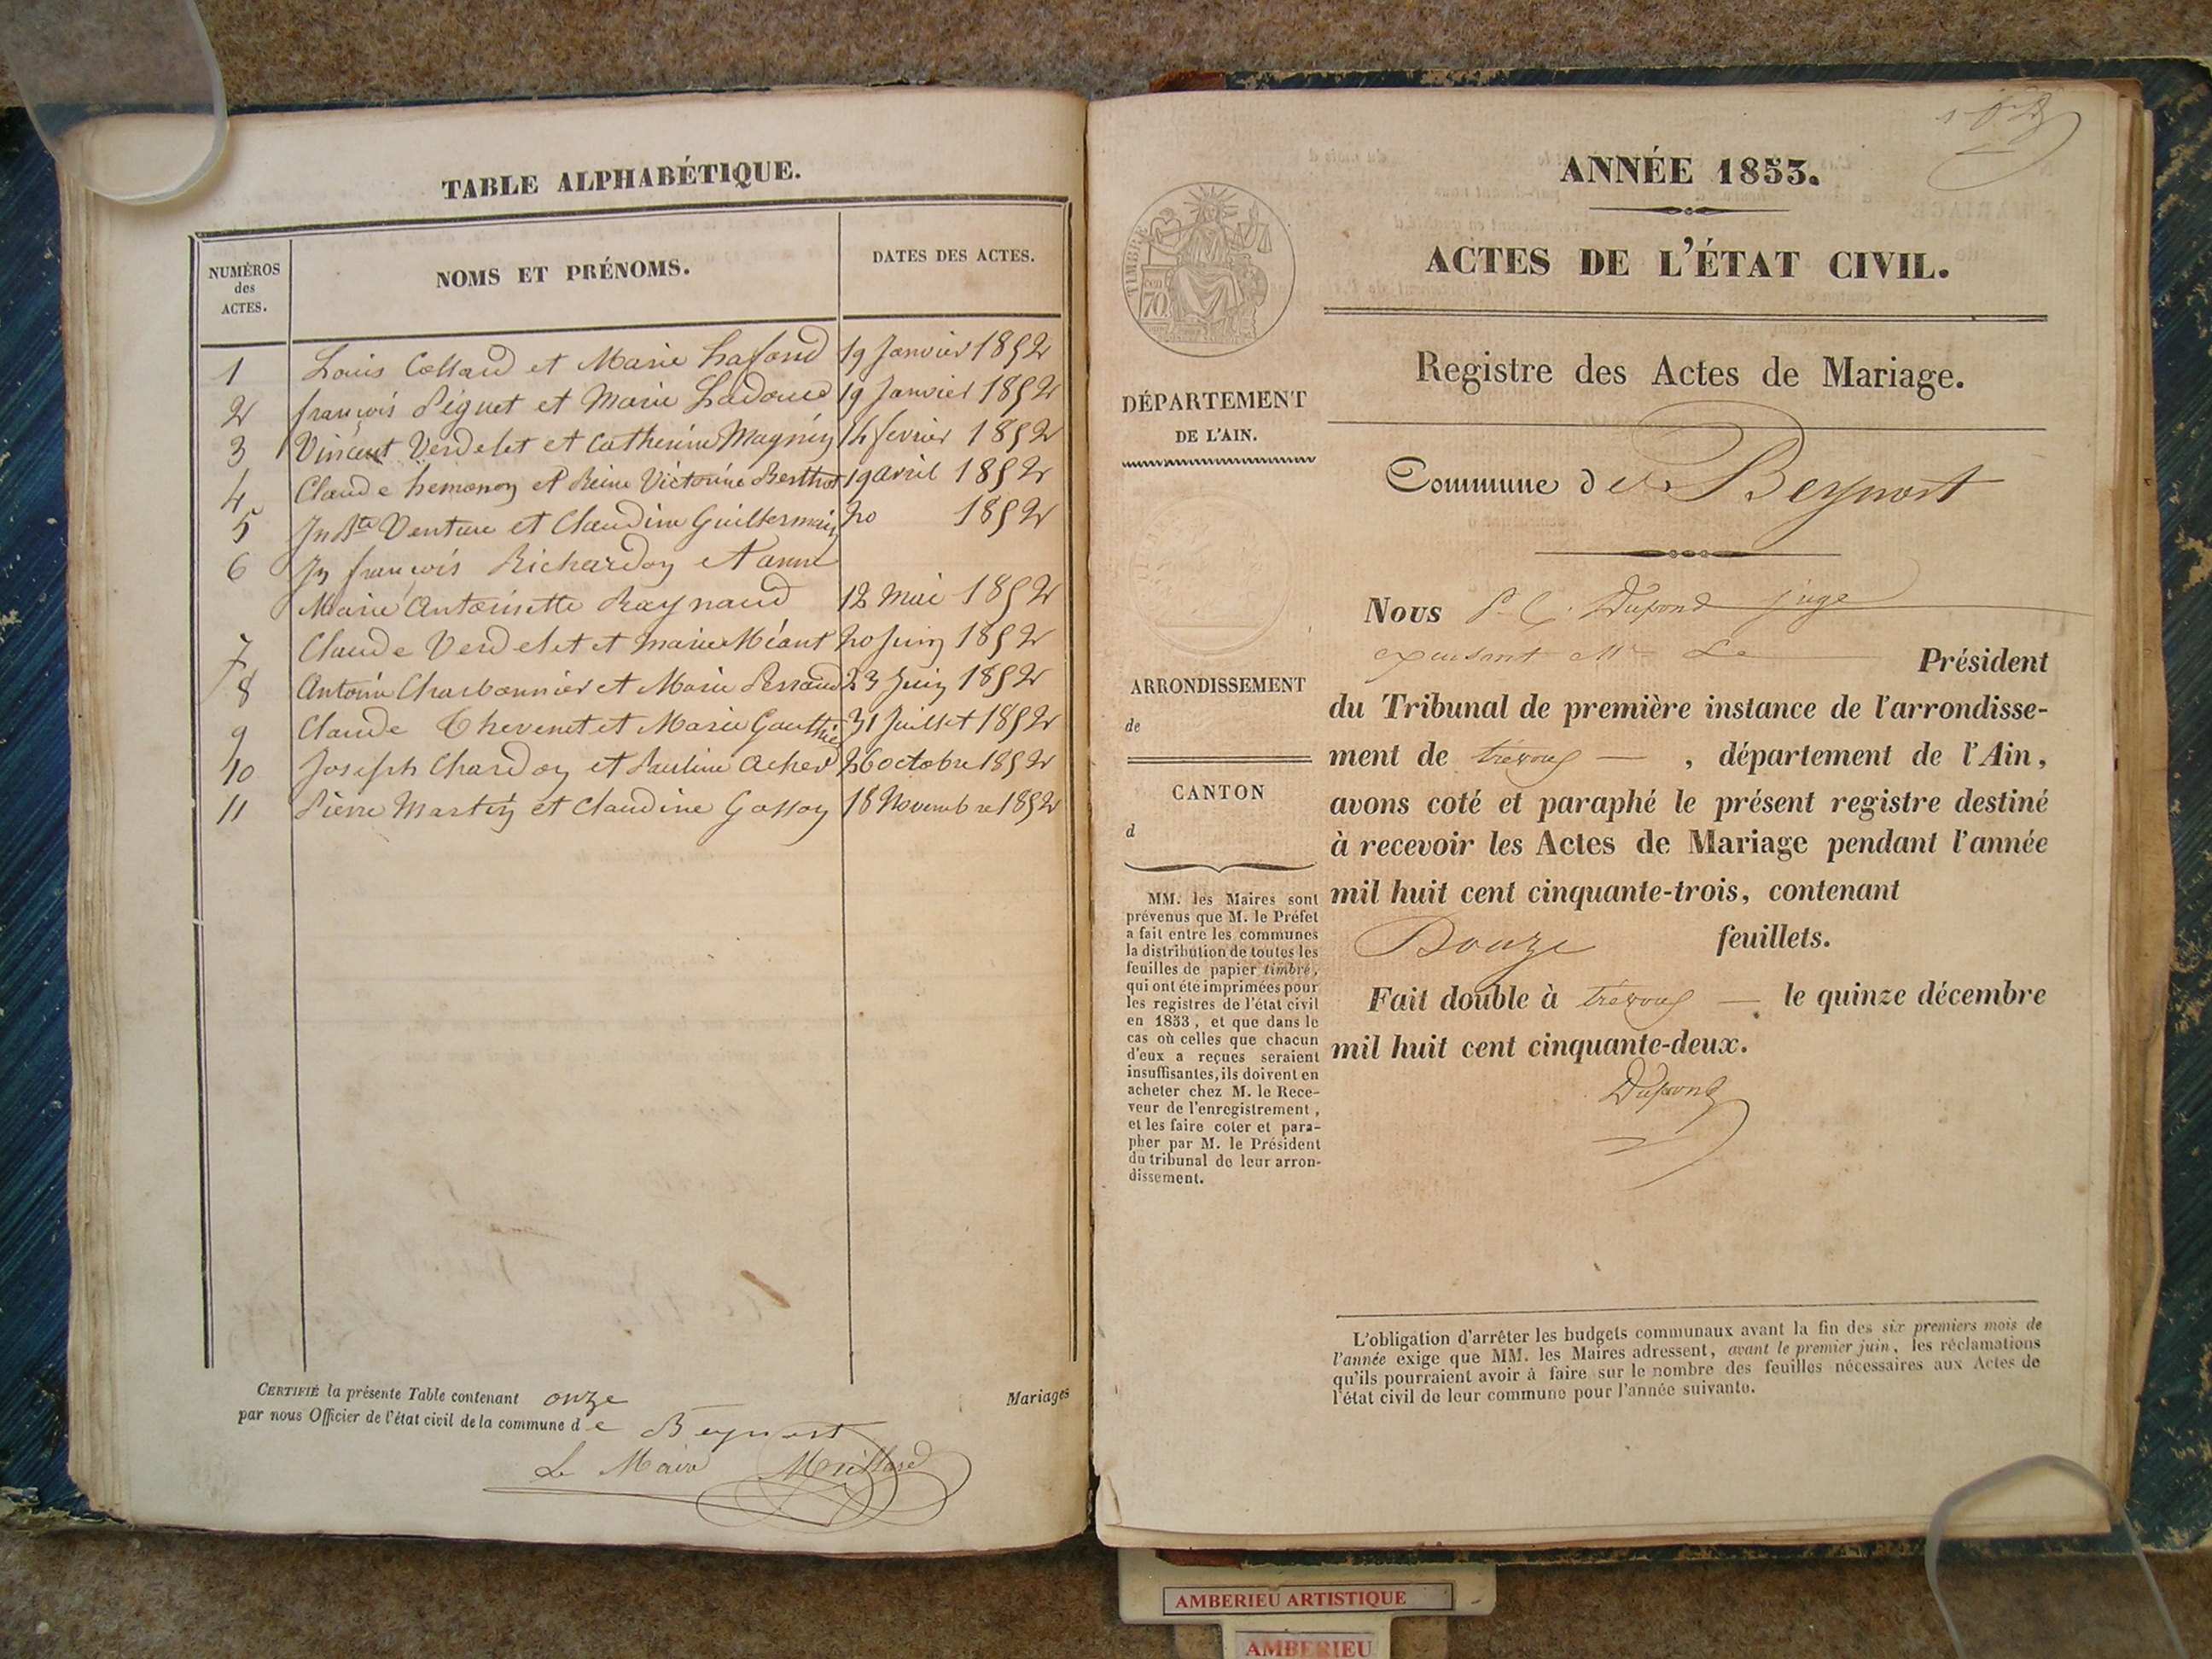 TABLE ALPHABÉTIQUE.
NUMÉROS
des
ACTES.
NOMS ET PRÉNOMS.
DATES DES ACTES.
1 Louis Collard et Marie Lafond 19 Janvier 1852
2 françois Piguet et Marie 19 Janvier 1852
3 Vincent Verdelet et Catherine Magnin 14 fevrier 1852
4 Claude et Reine Victorine Berthet 19 avril 1852
5 Jn Bte Venture et Claudine Guillermain 20 1852
6 Jn françois Richardon et anne
Marie Antoinette Raynaud 12 Mai 1852
7 Claude Verdelet et marie Méant 20 Juin 1852
8 Antoine Charbonnier et Marie Perraud 23 Juin 1852
9 Claude Thevenet et Marie Gauthier 31 Juillet 1852
10 Joseph Chardon et Pauline Acher 26 octobre 1852
11 Pierre Martin et Claudine 18 Novembre 1852
CERTIFIÉ la présente Table contenant onze Mariages
par nous Officier de l'état civil de la commune de Beynost
Le Maire
ANNÉE 1853.
ACTES DE L'ÉTAT CIVIL.
Registre des Actes de Mariage.
Commune de Beynost
TIMBRE
70
DÉPARTEMENT
DE L'AIN.
ARRONDISSEMENT
de
CANTON
d
MM. les Maires sont
prévenus que M. le Préfet
a fait entre les communes
la distribution de toutes les
feuilles de papier timbré,
qui ont été imprimées pour
les registres de l'état civil
en 1853, et que dans le
cas où celles que chacun
d'eux a reçues seraient
insuffisantes, ils doivent en
acheter chez M. le Rece-
veur de l'enregistrement,
et les faire coter et para-
pher par M. le Président
du tribunal de leur arron-
dissement.
Nous Dupond juge
Mr Le Président
du Tribunal de première instance de l'arrondisse-
ment de trévoux, département de l'Ain,
avons coté et paraphé le présent registre destiné
à recevoir les Actes de Mariage pendant l'année
mil huit cent cinquante-trois, contenant
Douze feuillets.
Fait double à trévoux le quinze décembre
mil huit cent cinquante-deux.
Dupond
L'obligation d'arrêter les budgets communaux avant la fin des six premiers mois de
l'année exige que MM. les Maires adressent, avant le premier juin, les réclamations
qu'ils pourraient avoir à faire sur le nombre des feuilles nécessaires aux Actes de
l'état civil de leur commune pour l'année suivante.
AMBERIEU ARTISTIQUE
AMBERIEU